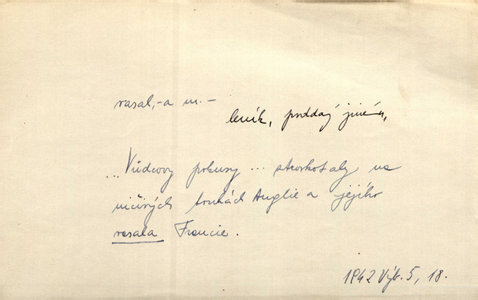 vasal,-a m.-
leník, poddaný jiných,
„Vůdcovy pokusy ... ztroskotaly na
ničivých touhách Anglie a jejího
vasala Francie.
1942 Výb. 5, 18.